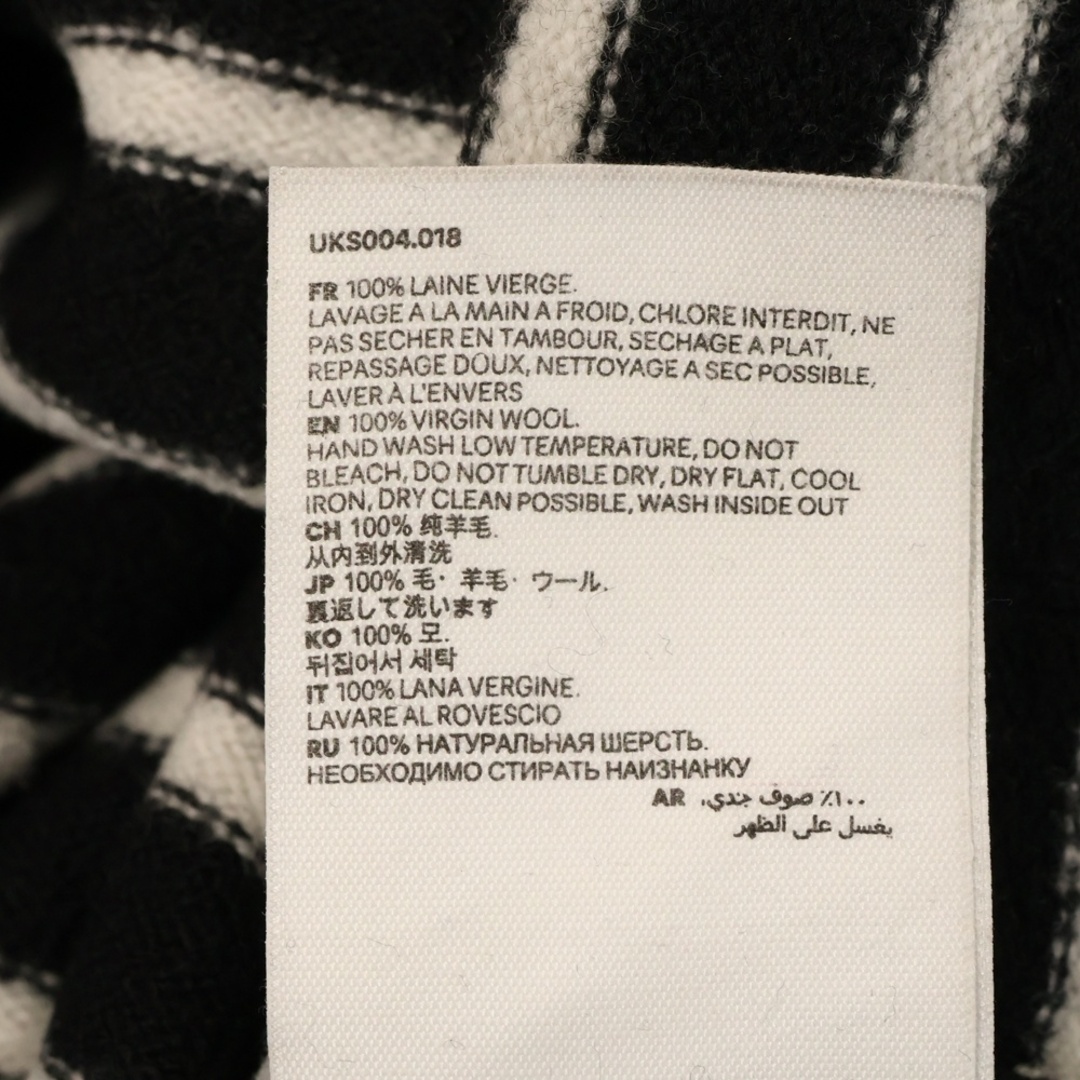 UKS004.018
FR 100% LAINE VIERGE.
LAVAGE A LA MAIN A FROID, CHLORE INTERDIT, NE
PAS SECHER EN TAMBOUR, SECHAGE A PLAT,
REPASSAGE DOUX, NETTOYAGE A SEC POSSIBLE,
LAVER À L'ENVERS
EN 100% VIRGIN WOOL.
HAND WASH LOW TEMPERATURE, DO NOT
BLEACH, DO NOT TUMBLE DRY, DRY FLAT, COOL
IRON, DRY CLEAN POSSIBLE, WASH INSIDE OUT
CH 100% 纯羊毛.
从内到外清洗
JP 100% 毛· 羊毛· ウール.
裏返して洗います
KO 100% 모.
뒤집어서 세탁
IT 100% LANA VERGINE.
LAVARE AL ROVESCIO
RU 100% НАТУРАЛЬНАЯ ШЕРСТЬ.
НЕОБХОДИМО СТИРАТЬ НАИЗНАНКУ
AR ١٠٠٪ صوف جندي.
يغسل على الظهر